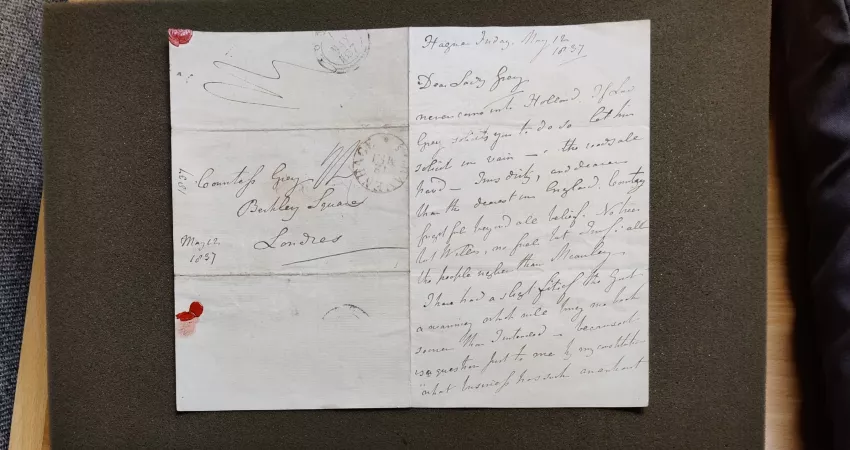 1837
Countess Grey
Berkley Square
Londres
May 12
1837
Hague Friday May 12
1837
Dear Lady Grey
never come into Holland. If Lord
Grey solicits you to do so let him
solicit in vain – the roads are
hard – Inns dirty, and dearer
than the dearest in England. Country
frightful beyond all belief. No trees
but Willows, no fuel but Turf: all
the people uglier than
I have had a slight fit of the Gout
a warning which will bring me back
sooner than I intended – because it
is a question put to me by my constitution
"what business has such an